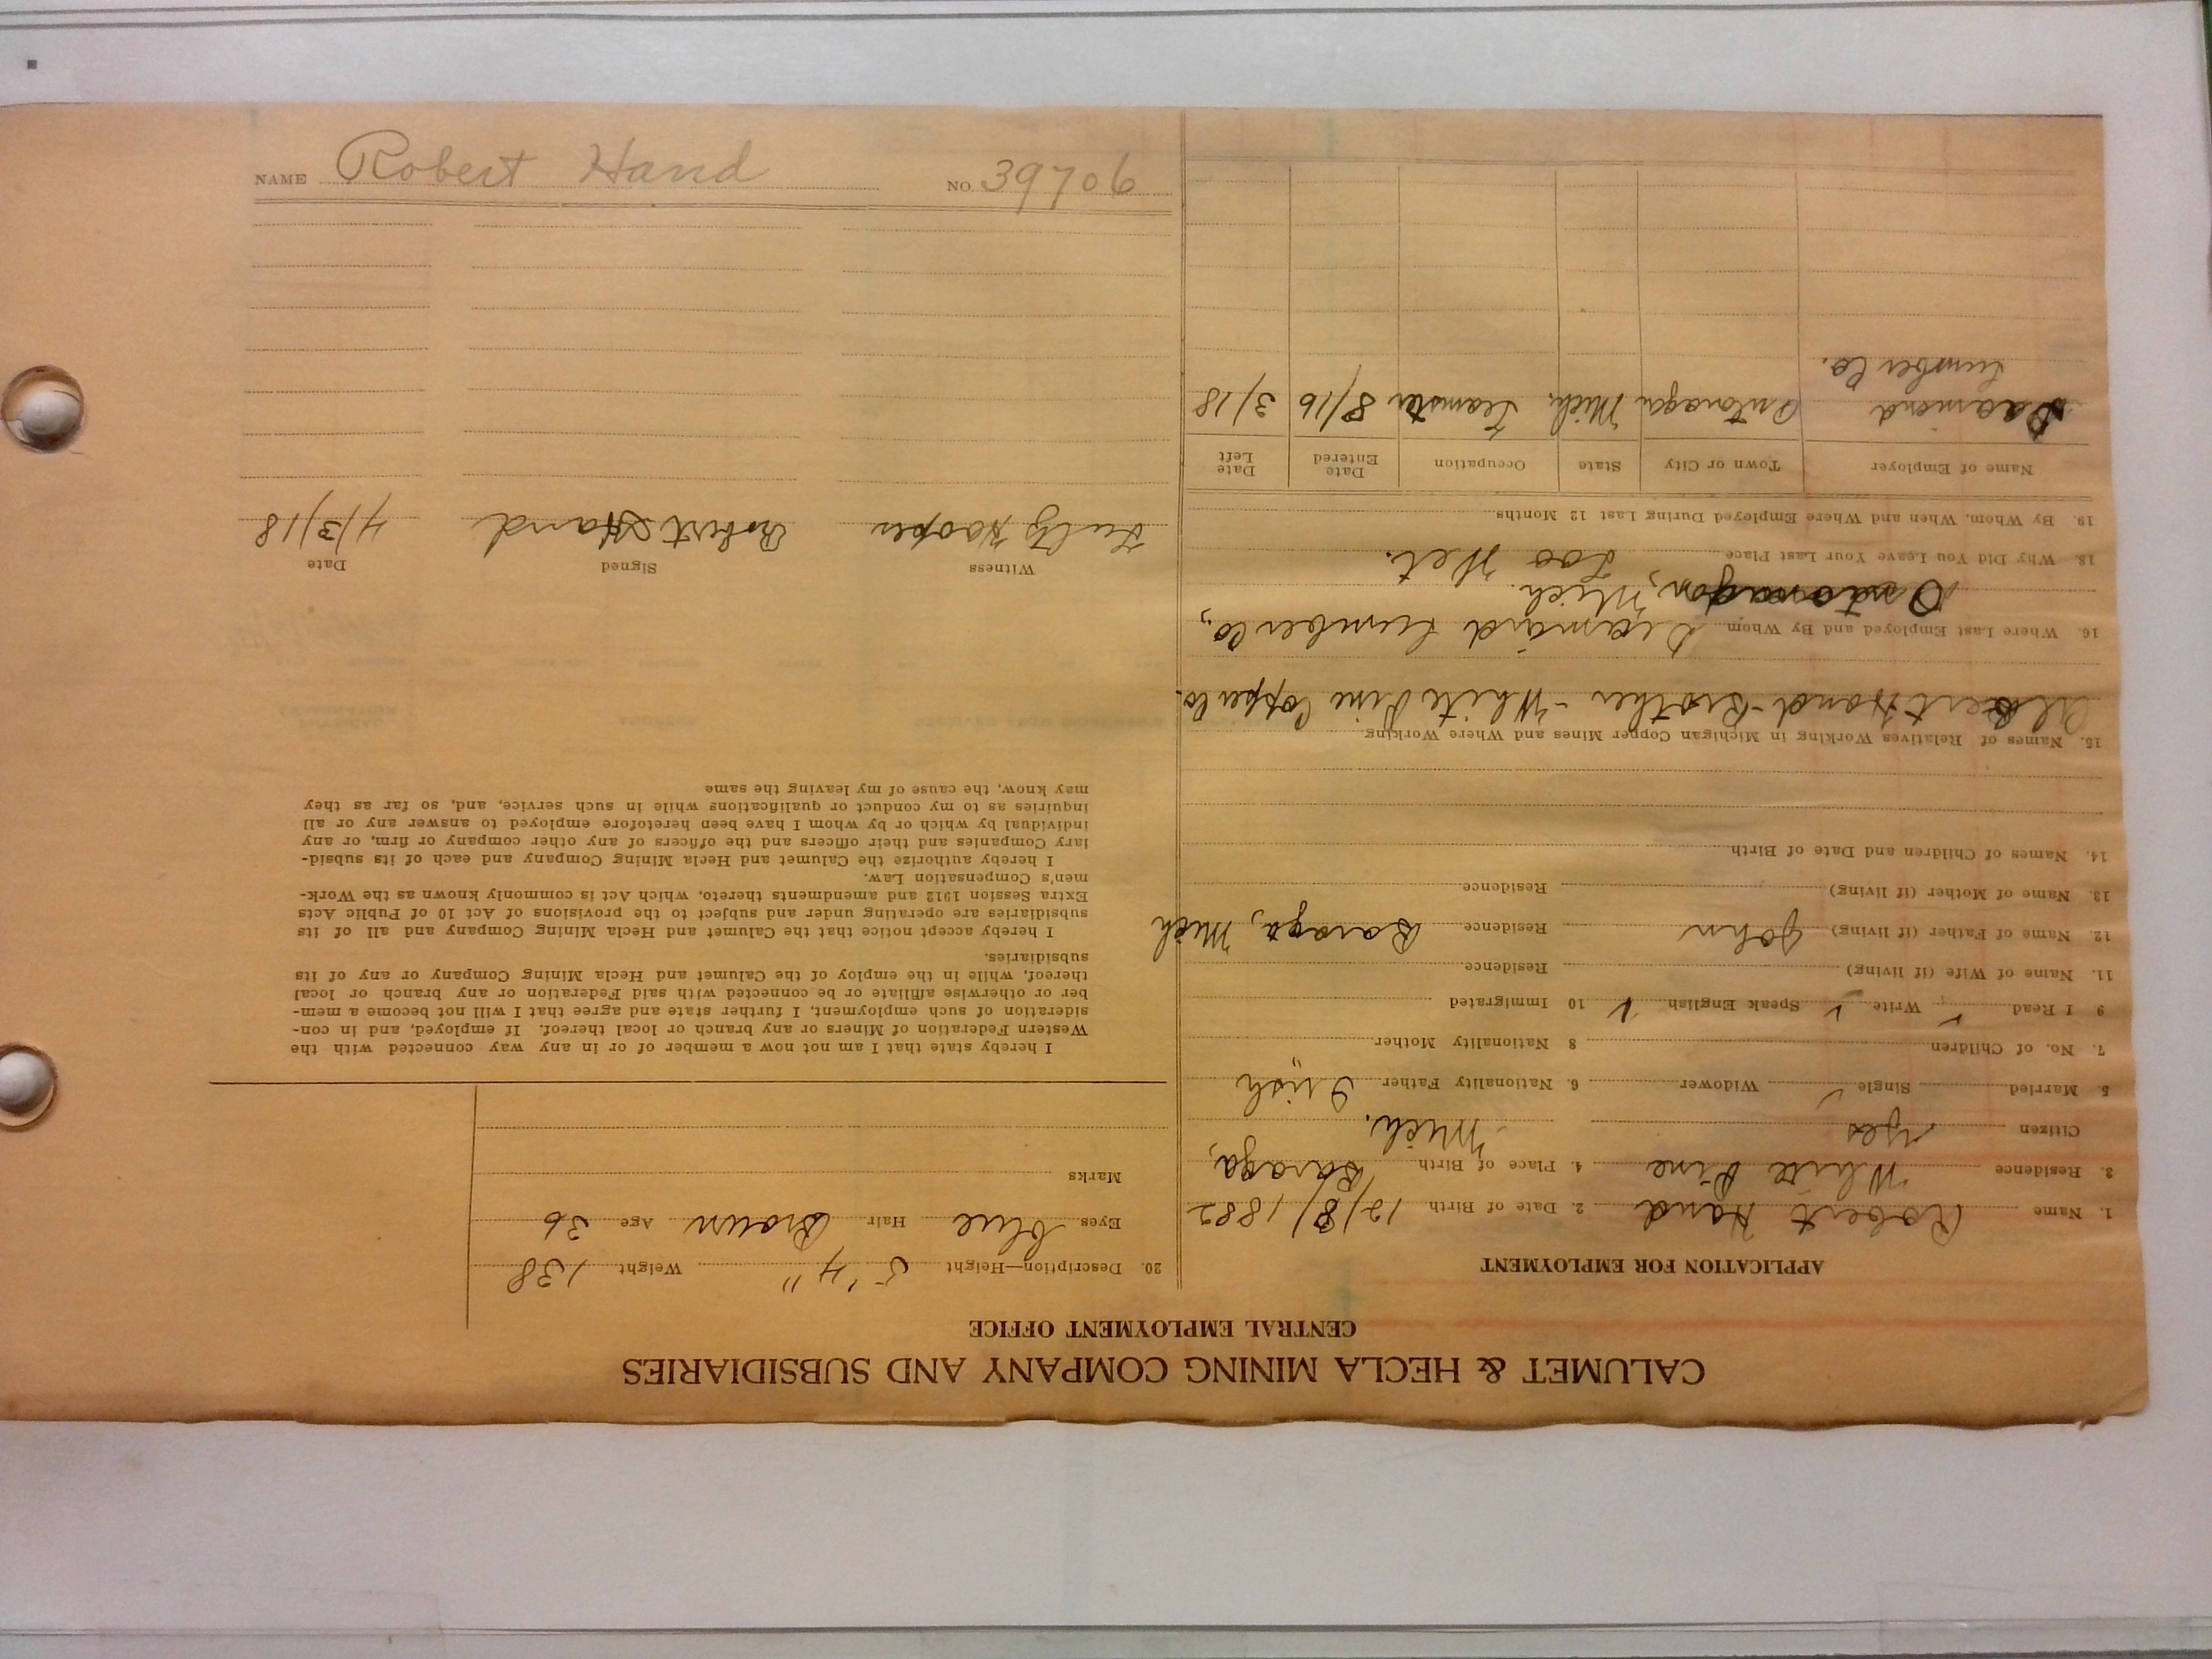 CALUMET & HECLA MINING COMPANY AND SUBSIDIARIES
CENTRAL EMPLOYMENT OFFICE
APPLICATION FOR EMPLOYMENT
1. Name Robert Hand 2. Date of Birth 12/8/1882
3. Residence White Pine 4. Place of Birth Baraga,
Citizen Yes Mich.
5. Married Single ✓ Widower 6. Nationality Father Irish
7. No. of Children 8 Nationality Mother "
9 I Read ✓ Write ✓ Speak English ✓ 10 Immigrated
11. Name of Wife (if living) Residence
12. Name of Father (if living) John Residence Baraga, Mich
13. Name of Mother (if living) Residence
14. Names of Children and Date of Birth
15. Names of Relatives Working in Michigan Copper Mines and Where Working
Albert Hand - Brother - White Pine Copper Co.
16. Where Last Employed and By Whom Diamond Lumber Co.,
Ontonagon, Mich.
18. Why Did You Leave Your Last Place Too Wet.
19. By Whom, When and Where Employed During Last 12 Months
Name of Employer Town or City State Occupation Date Entered Date Left
Diamond Ontonagon Mich. Teamster 8/16 3/18
Lumber Co.
20. Description—Height 5' 4" Weight 138
Eyes blue Hair Brown Age 36
Marks
I hereby state that I am not now a member of or in any way connected with the
Western Federation of Miners or any branch or local thereof. If employed, and in con-
sideration of such employment, I further state and agree that I will not become a mem-
ber or otherwise affiliate or be connected with said Federation or any branch or local
thereof, while in the employ of the Calumet and Hecla Mining Company or any of its
subsidiaries.
I hereby accept notice that the Calumet and Hecla Mining Company and all of its
subsidiaries are operating under and subject to the provisions of Act 10 of Public Acts
Extra Session 1912 and amendments thereto, which Act is commonly known as the Work-
men's Compensation Law.
I hereby authorize the Calumet and Hecla Mining Company and each of its subsid-
iary Companies and their officers and the officers of any other company or firm, or any
individual by which or by whom I have been heretofore employed to answer any or all
inquiries as to my conduct or qualifications while in such service, and, so far as they
may know, the cause of my leaving the same
Witness Signed Date
Hooper Robert Hand 4/3/18
NAME Robert Hand NO. 39706